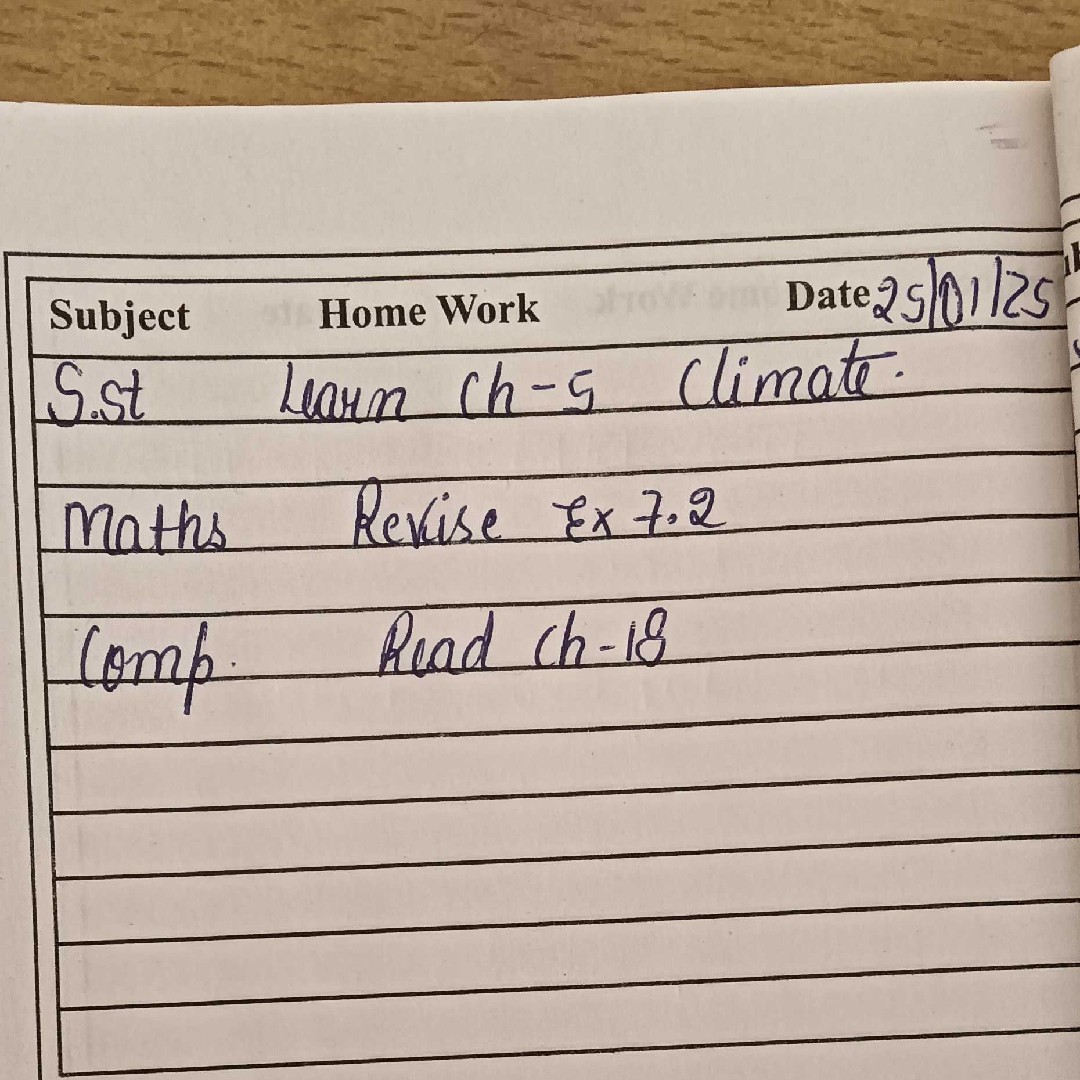 Subject Home Work Date 25/01/25
S.st Learn Ch-5 Climate.
Maths Revise Ex 7.2
Comp. Read Ch-18